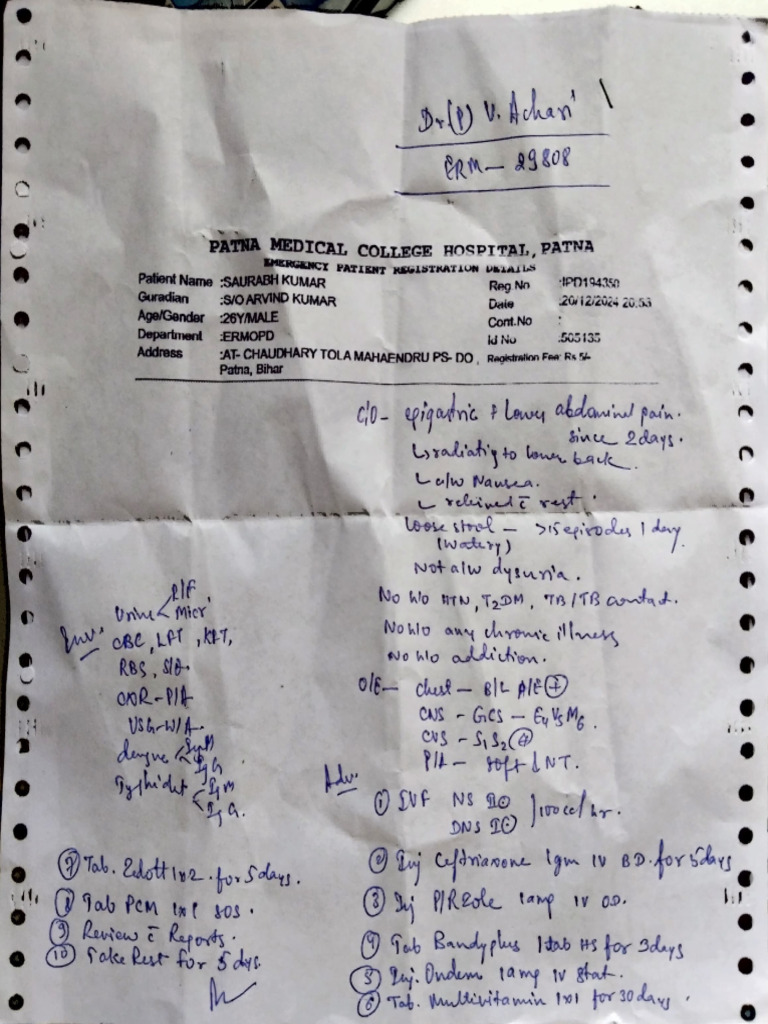 Dr(P) V. Achari
ERM - 29808
PATNA MEDICAL COLLEGE HOSPITAL, PATNA
EMERGENCY PATIENT REGISTRATION DETAILS
Patient Name :SAURABH KUMAR Reg.No :IPD194350
Guradian :S/O ARVIND KUMAR Date :20/12/2024 20:53
Age/Gender :26Y/MALE Cont.No :
Department :ERMOPD Id No :505135
Address :AT- CHAUDHARY TOLA MAHAENDRU PS- DO, Registration Fee: Rs 5/-
Patna, Bihar
C/O - epigastric + Lower abdominal pain.
since 2 days.
↳ radiating to lower back.
↳ a/w Nausea.
↳ relieved c̄ rest.
Loose stool - >15 episodes / day
(watery)
Not a/w dysuria.
No h/o HTN, T2DM, TB/TB contact.
No h/o any chronic illness
No h/o addiction.
O/E - Chest - B/L A/E ⊕
CNS - GCS - E4V5M6.
CVS - S1S2 ⊕
P/A - soft & NT.
Inv:
Urine < R/F
Micr.
CBC, LFT, KFT,
RBS,
CXR-P/A
USG-W/A.
dengue < IgM
IgG
Typhidot < IgM
IgG.
Adv:
① IVF NS
DNS } 100cc/hr.
② Inj Ceftriaxone 1gm IV BD. for 5 days
③ Inj P/RZole 1amp IV OD.
④ Tab Bandyplus 1tab HS for 3days
⑤ Inj. Ondem 1amp IV Stat.
⑥ Tab. Multivitamin 1x1 for 30 days.
⑦ Tab. Zedott 1x2 for 5 days.
⑧ Tab PCM 1x1 SOS.
⑨ Review c̄ Reports.
⑩ Take Rest for 5 days.